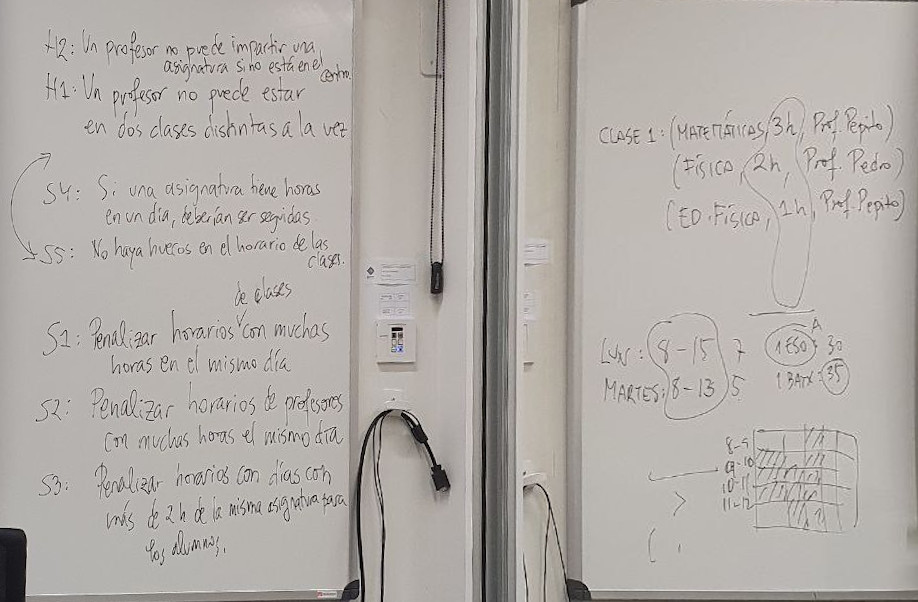 H2: Un profesor no puede impartir una
asignatura si no está en el centro.
H1: Un profesor no puede estar
en dos clases distintas a la vez
S4: Si una asignatura tiene horas
en un día, deberían ser seguidas.
S5: No haya huecos en el horario de las
clases.
de clases
S1: Penalizar horarios con muchas
horas en el mismo día
S2: Penalizar horarios de profesores
con muchas horas el mismo día
S3: Penalizar horarios con días con
más de 2h de la misma asignatura para
los alumnos.
CLASE 1: (MATEMÁTICAS, 3h, Prof. Pepito)
(FÍSICA, 2h, Prof. Pedro)
(ED. FÍSICA, 1h, Prof. Pepito)
LUN: 8-15 7
MARTES: 8-13 5
1 ESO A 30
1 BATX: 35
8-9
9-10
10-11
11-12